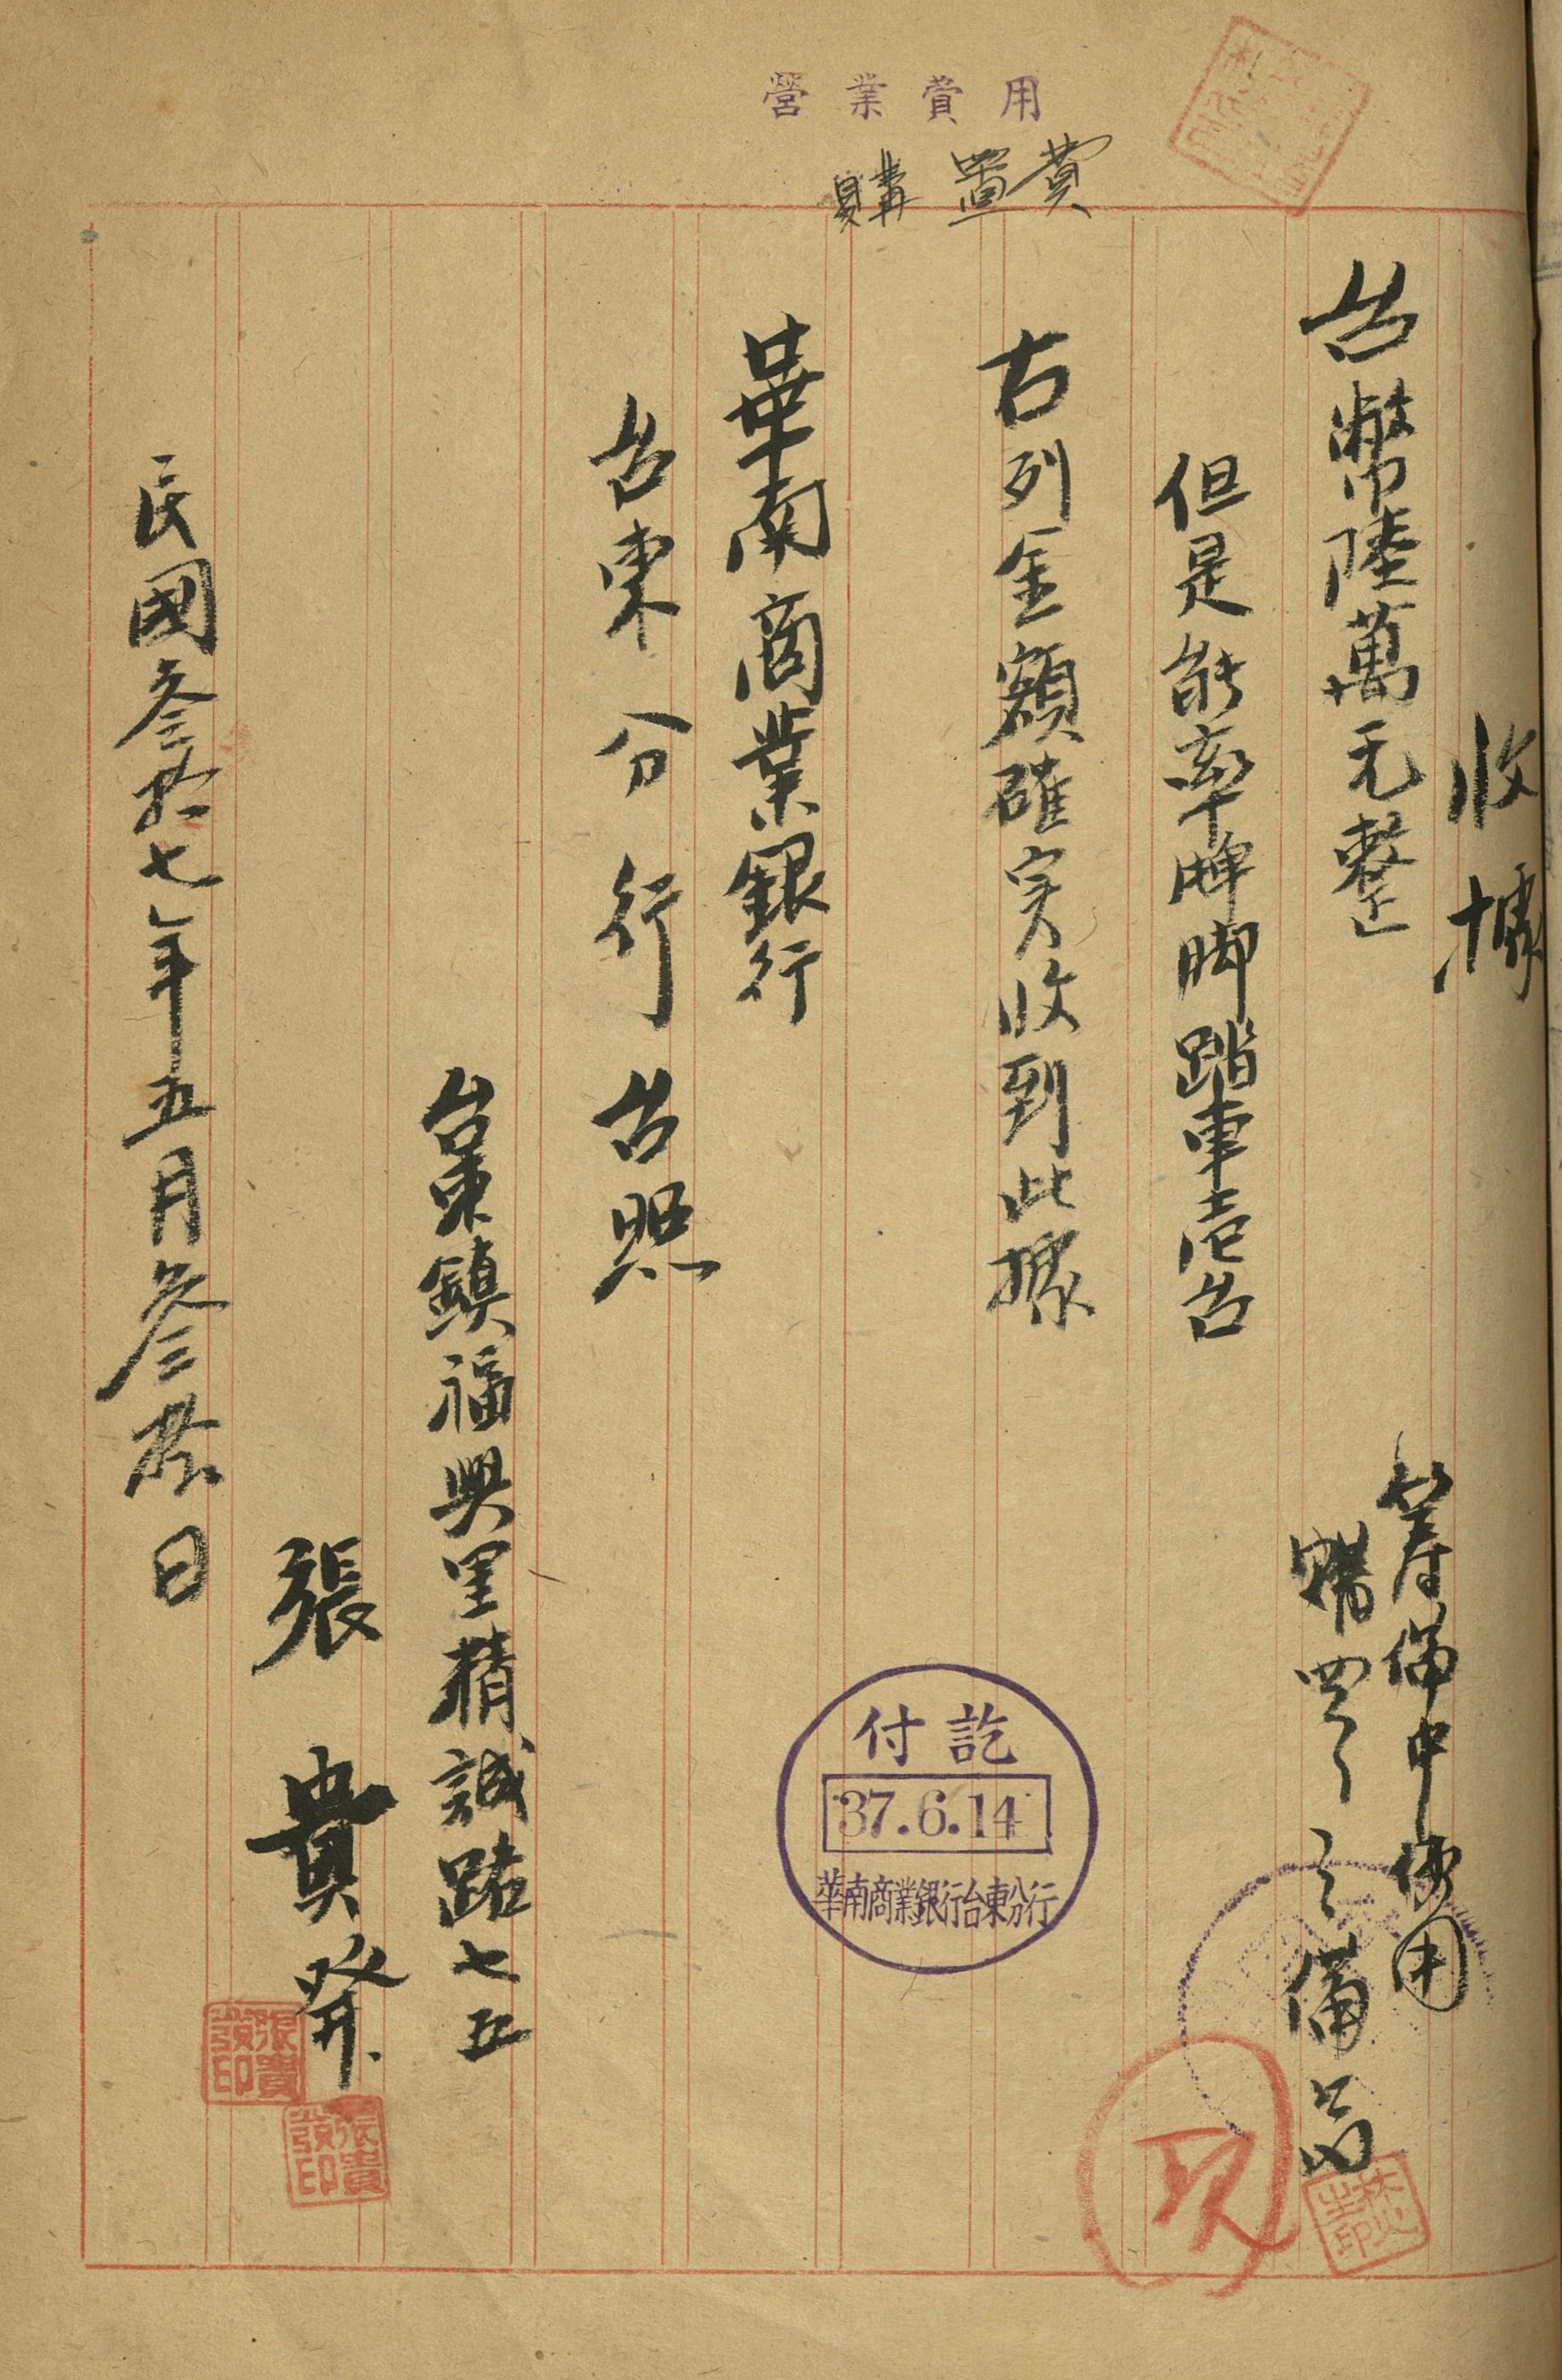 營業費用
購置費
收據
台幣陸萬元整
但是能率牌脚踏車壱台
右列金額確实收到此據
華南商業銀行
台東分行台照
台東鎮福興里精誠路七五
張貴發
民國叁拾七年五月叁拾日
籌備中使用
購買之備品
付訖
37.6.14
華南商業銀行台東分行
張貴發印
張貴發印